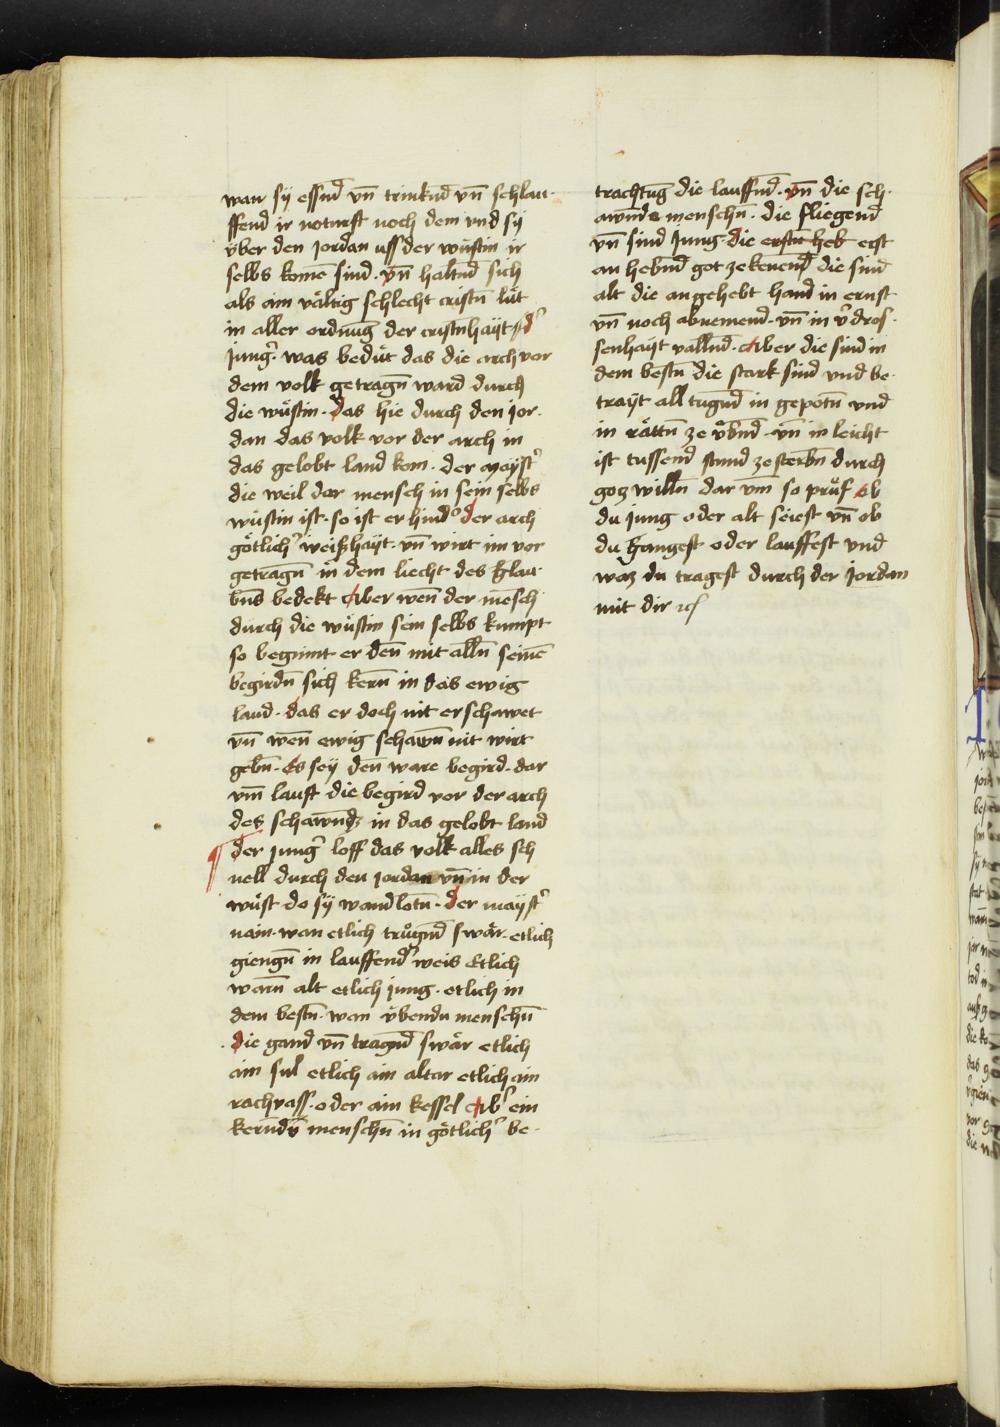 wan sÿ essnd vn̄ trinknd vn̄ schlau-
ffend ir noturft noch dem vnd sÿ
v̈ber den Jordan uss der wüstin ir
selbs komē sind. vn̄ haltnd sich
als ain vältig schlecht cristn̄ lüt
in aller ordnūg der cristn̄haÿt d'
Jung'. was bedüt das die arch vor
dem volk getragn̄ ward durch
die wüstin. das hie durch den Jor-
dan das volk vor der arch in
das gelobt land kom. der mayst'
die weil dar mensch in sein selbs
wüstin ist. so ist er hind' der arch
götlich' weißhaÿt. vn̄ wirt im vor
getragn̄ in dem liecht des glau-
bn̄s bedekt Aber wen̄ der mēsch
durch die wüstin sein selbs kumpt
so begint er den̄ mit alln̄ seinē
begirdn̄ sich kern̄ in das ewig
land. das er doch nit erschawet
vn̄ wen̄ ewig schawn̄ nit wirt
gebn̄. Es seÿ den̄ ware begird. dar
vm̄ lauft die begird vor der arch
des schawn̄dz in das gelobt land
der Jung' loff das volk alles sch
nell durch den Jordan vn̄ in der
wüst do sÿ wandlotn̄. der mayst'
nain. wan etlich trügnd swär. etlich
giengn̄ in lauffend' weis Etlich
warn̄ alt etlich jung. etlich in
dem bestn̄. wan v̈bendn menschn̄
die gand vn̄ tragnd swär etlich
ain sul etlich ain altar etlich ain
rachvass. oder ain kessel Ab' ein
kern̄dē menschn̄ in götlich' be-
trachtūg die lauffnd. vn̄ die sch-
awnds menschn̄. die fliegend
vn̄ sind Jung. die erstn̄ heb erst
an hebnd got ze kenend die sind
alt die angehebt hand in ernst
vn̄ noch abnemend. vn̄ in v'dros-
senhaÿt vallnd. Aber die sind in
dem bestn̄ die stark sind vnd be-
traÿt all tugnd in gepotn̄ vnd
in rättn̄ ze v̈bnd. vn̄ in leicht
ist tussend stund ze sterbn̄ durch
goz willn̄ dar vm̄ so prüf ob
du jung oder alt seiest vn̄ ob
du gangest oder lauffest vnd
waz du tragest durch der Jordan
mit dir